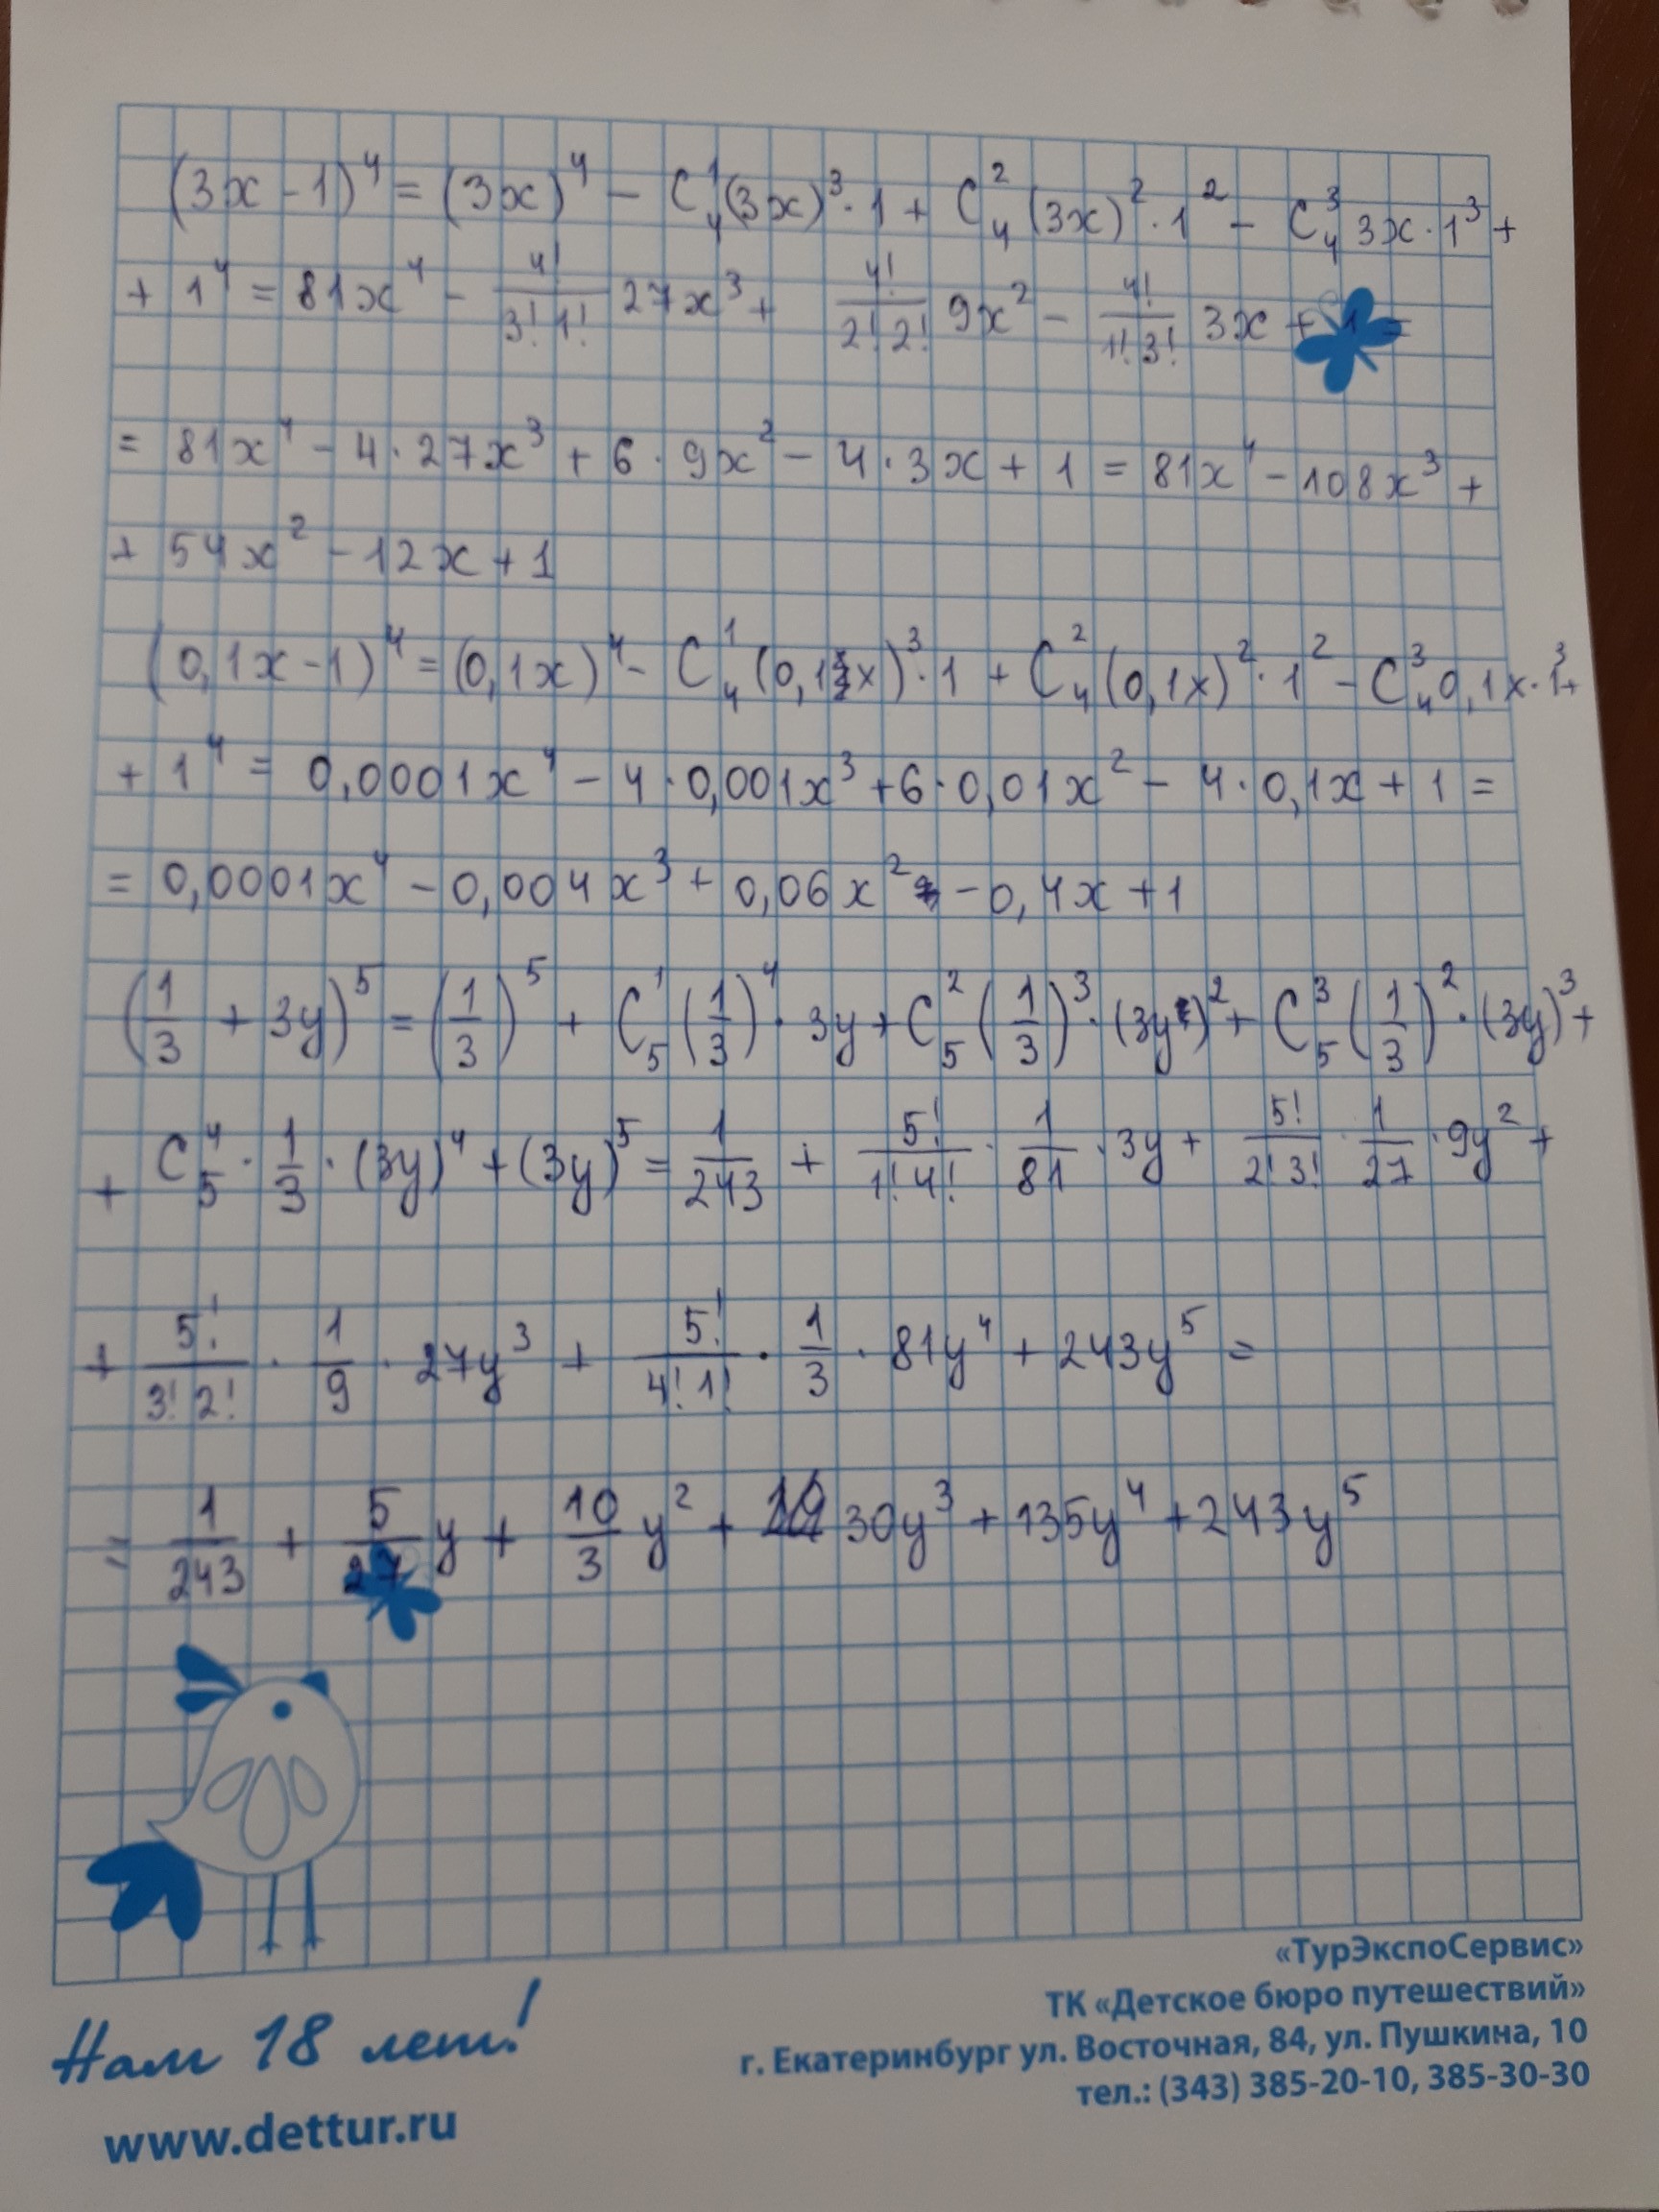 (3x - 1)⁴ = (3x)⁴ - C₄¹(3x)³ · 1 + C₄²(3x)² · 1² - C₄³ 3x · 1³ +
+ 1⁴ = 81x⁴ - 4!/(3! 1!) 27x³ + 4!/(2! 2!) 9x² - 4!/(1! 3!) 3x + 1 =
= 81x⁴ - 4 · 27x³ + 6 · 9x² - 4 · 3x + 1 = 81x⁴ - 108x³ +
+ 54x² - 12x + 1
(0,1x - 1)⁴ = (0,1x)⁴ - C₄¹(0,1x)³ · 1 + C₄²(0,1x)² · 1² - C₄³ 0,1x · 1³ +
+ 1⁴ = 0,0001x⁴ - 4 · 0,001x³ + 6 · 0,01x² - 4 · 0,1x + 1 =
= 0,0001x⁴ - 0,004x³ + 0,06x² - 0,4x + 1
(1/3 + 3y)⁵ = (1/3)⁵ + C₅¹(1/3)⁴ · 3y + C₅²(1/3)³ · (3y)² + C₅³(1/3)² · (3y)³ +
+ C₅⁴ · 1/3 · (3y)⁴ + (3y)⁵ = 1/243 + 5!/(1! 4!) · 1/81 · 3y + 5!/(2! 3!) · 1/27 · 9y² +
+ 5!/(3! 2!) · 1/9 · 27y³ + 5!/(4! 1!) · 1/3 · 81y⁴ + 243y⁵ =
= 1/243 + 5/27 y + 10/3 y² + 30y³ + 135y⁴ + 243y⁵
Нам 18 лет!
www.dettur.ru
«ТурЭкспоСервис»
ТК «Детское бюро путешествий»
г. Екатеринбург ул. Восточная, 84, ул. Пушкина, 10
тел.: (343) 385-20-10, 385-30-30